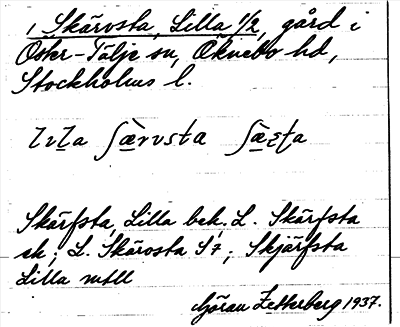 1 Skärvsta, Lilla 1/2, gård i
Öster-Tälje sn, Öknebo hd,
Stockholms l.
lılla ʃæ̀rvsta ʃæsta
Skärfsta, Lilla bek. L. Skärfsta
ek; L. Skärvsta J7; Skjärfsta
Lilla mtll
Göran Zetterberg 1937.